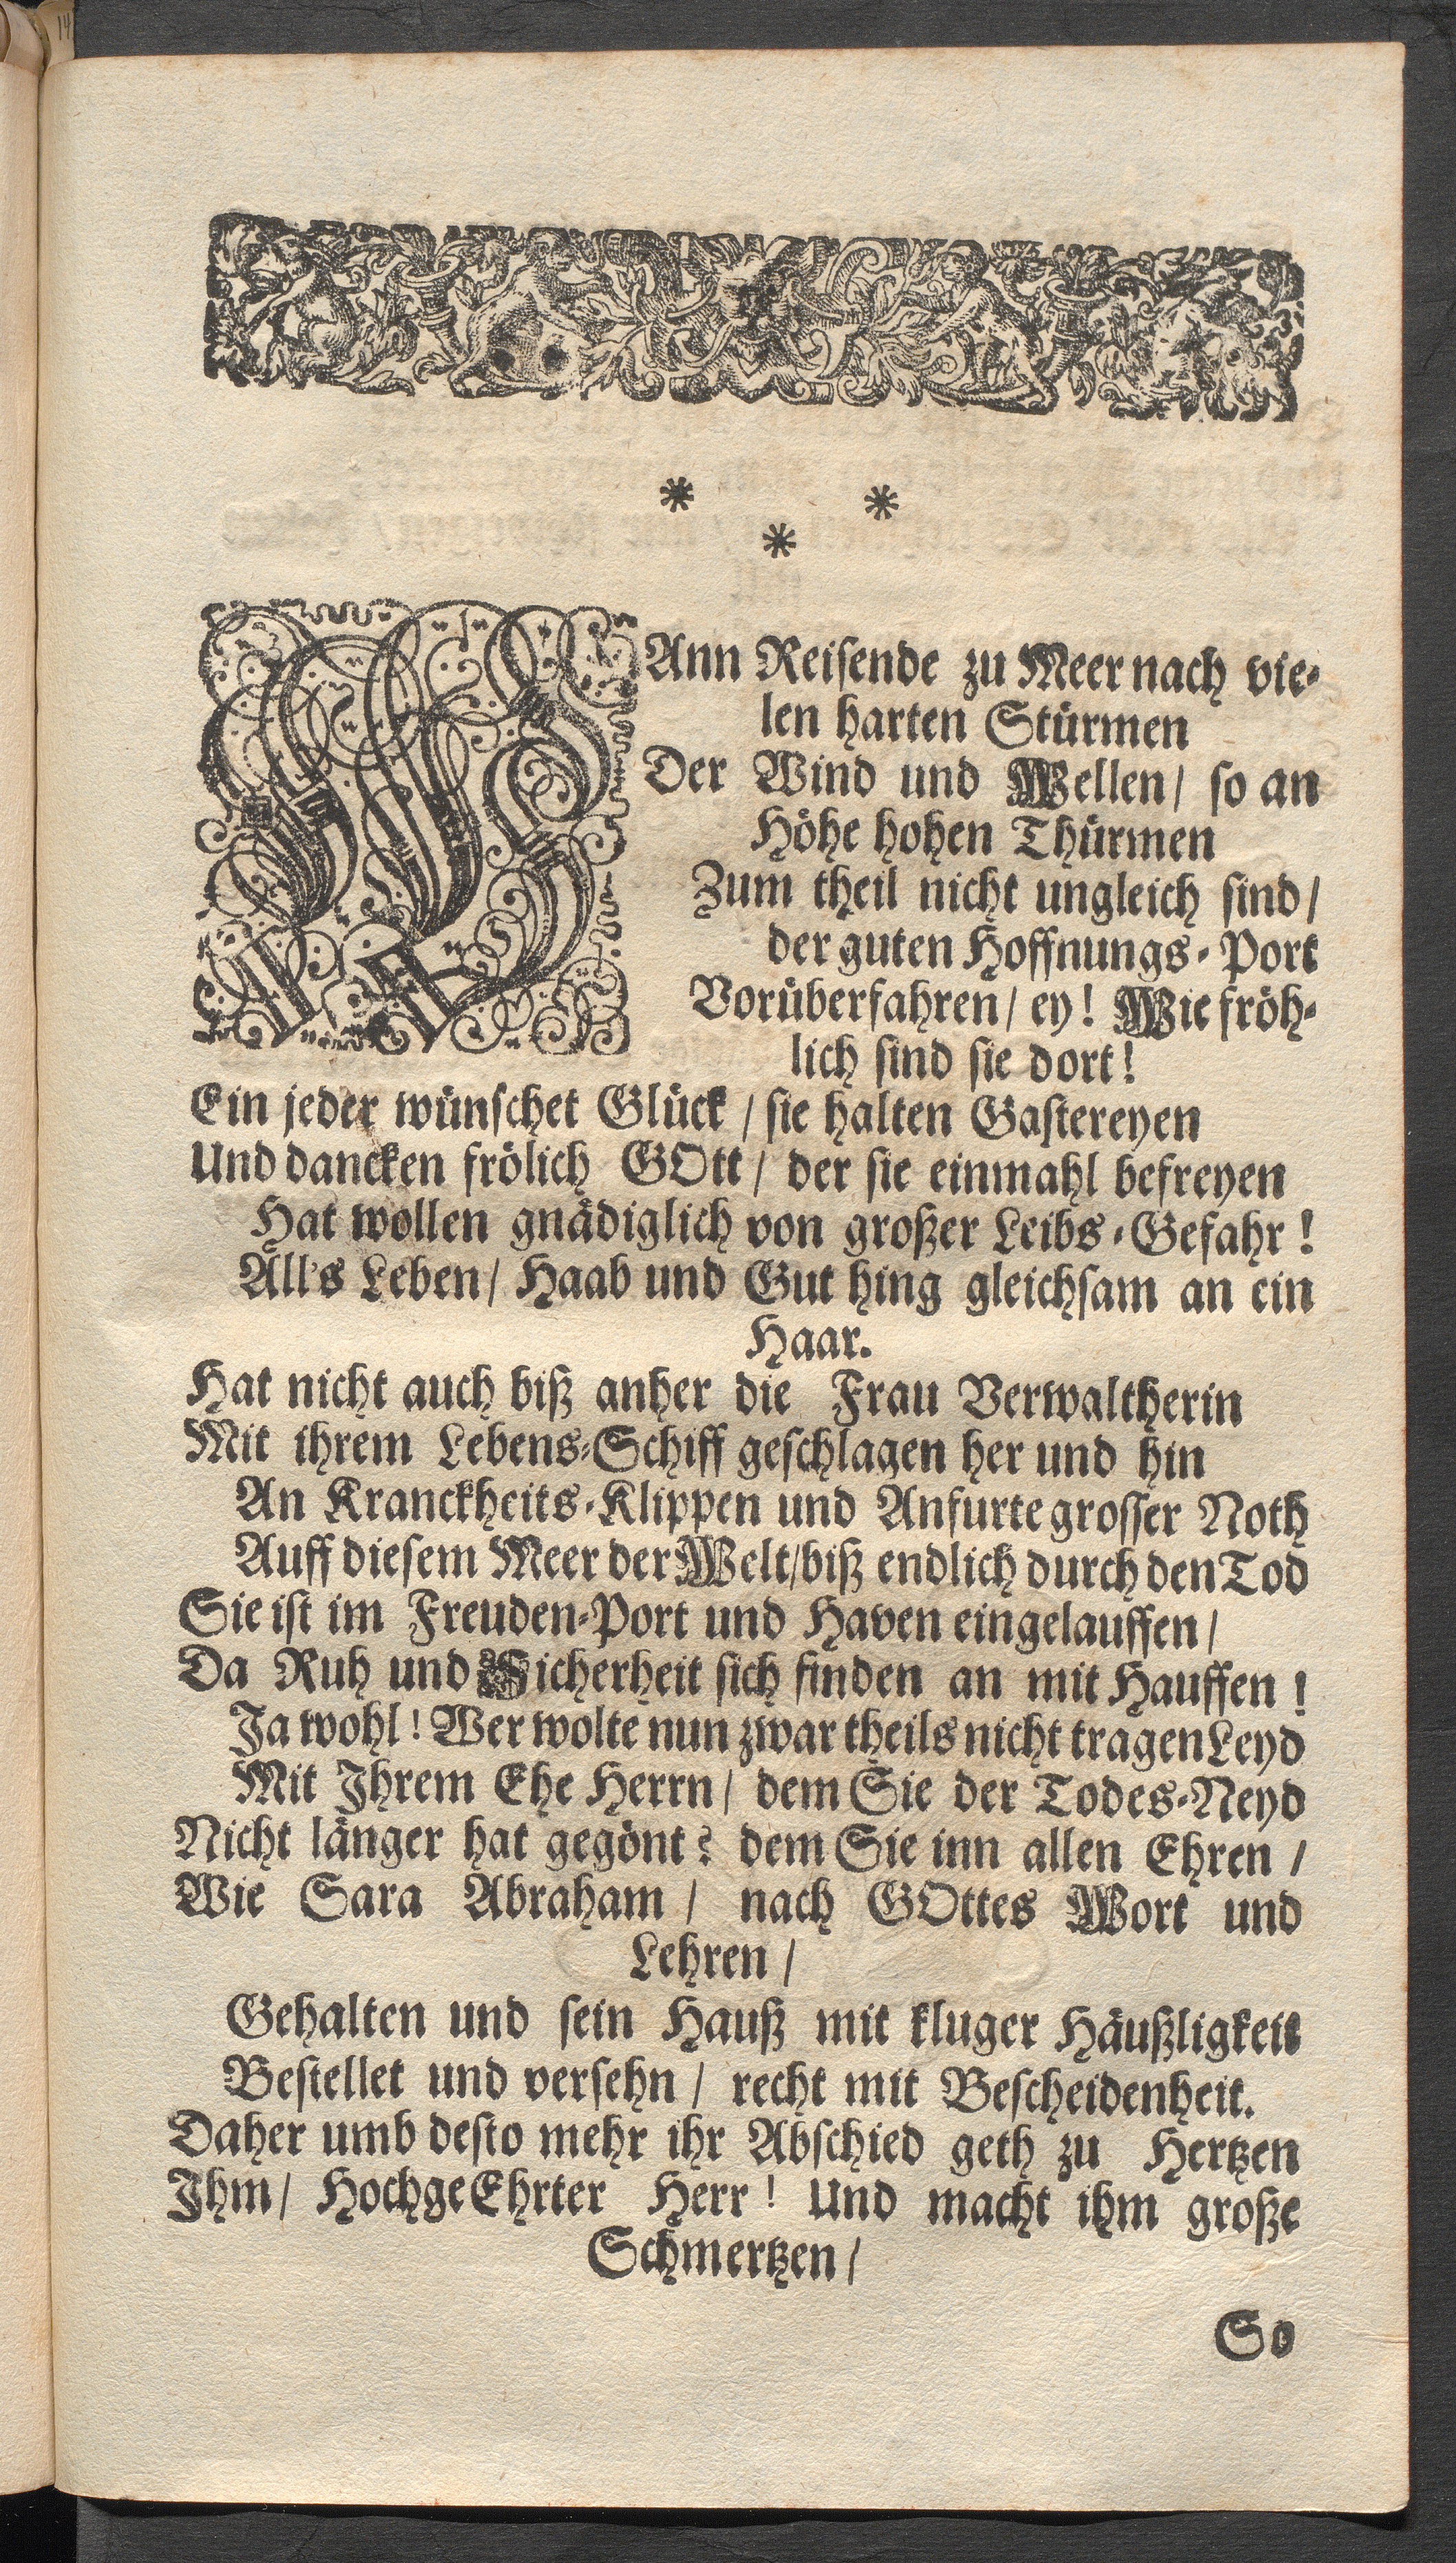 * *
*
WAnn Reisende zu Meer nach vie-
len harten Stürmen
Der Wind und Wellen / so an
Höhe hohen Thürmen
Zum theil nicht ungleich sind /
der guten Hoffnungs-Port
Vorüberfahren / ey! Wie fröh-
lich sind sie dort!
Ein jeder wünschet Glück / sie halten Gastereyen
Und dancken frölich GOtt / der sie einmahl befreyen
Hat wollen gnädiglich von großer Leibs-Gefahr!
All's Leben / Haab und Gut hing gleichsam an ein
Haar.
Hat nicht auch biß anher die Frau Verwaltherin
Mit ihrem Lebens-Schiff geschlagen her und hin
An Kranckheits-Klippen und Anfurte grosser Noth
Auff diesem Meer der Welt / biß endlich durch den Tod
Sie ist im Freuden-Port und Haven eingelauffen /
Da Ruh und Sicherheit sich finden an mit Hauffen!
Ja wohl! Wer wolte nun zwar theils nicht tragen Leyd
Mit Ihrem Ehe Herrn / dem Sie der Todes-Neyd
Nicht länger hat gegönt? dem Sie inn allen Ehren /
Wie Sara Abraham / nach GOttes Wort und
Lehren /
Gehalten und sein Hauß mit kluger Häußligkeit
Bestellet und versehn / recht mit Bescheidenheit.
Daher umb desto mehr ihr Abschied geth zu Hertzen
Ihm / HochgeEhrter Herr! Und macht ihm große
Schmertzen /
So